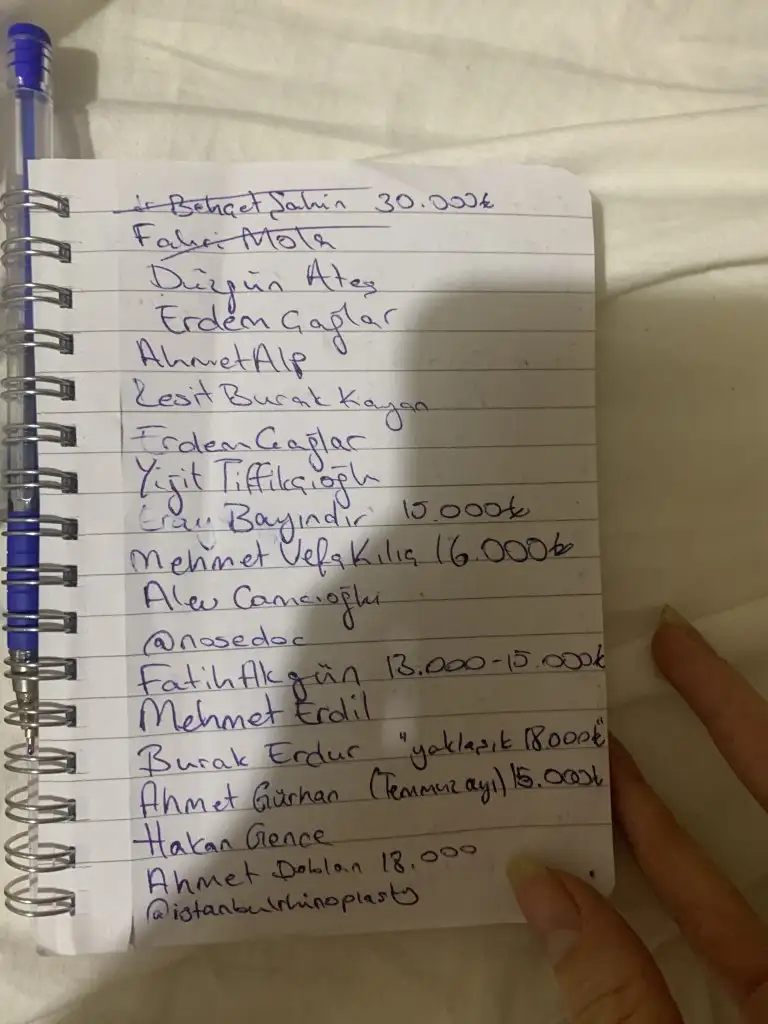 Behçet Şahin 30.000₺
Fahri Mola
Düzgün Ateş
Erdem Çağlar
Ahmet Alp
Reşit Burak Kayan
Erdem Çağlar
Yiğit Tiffikçioğlu
Eray Bayındır 15.000₺
Mehmet Vefa Kılıç 16.000₺
Alev Camcıoğlu
@nosedoc
Fatih Akgün 13.000-15.000₺
Mehmet Erdil
Burak Erdur "yaklaşık 18.000₺"
Ahmet Gürhan (Temmuz ayı) 15.000₺
Hakan Gence
Ahmet Doblan 18.000
@istanbulrhinoplasty